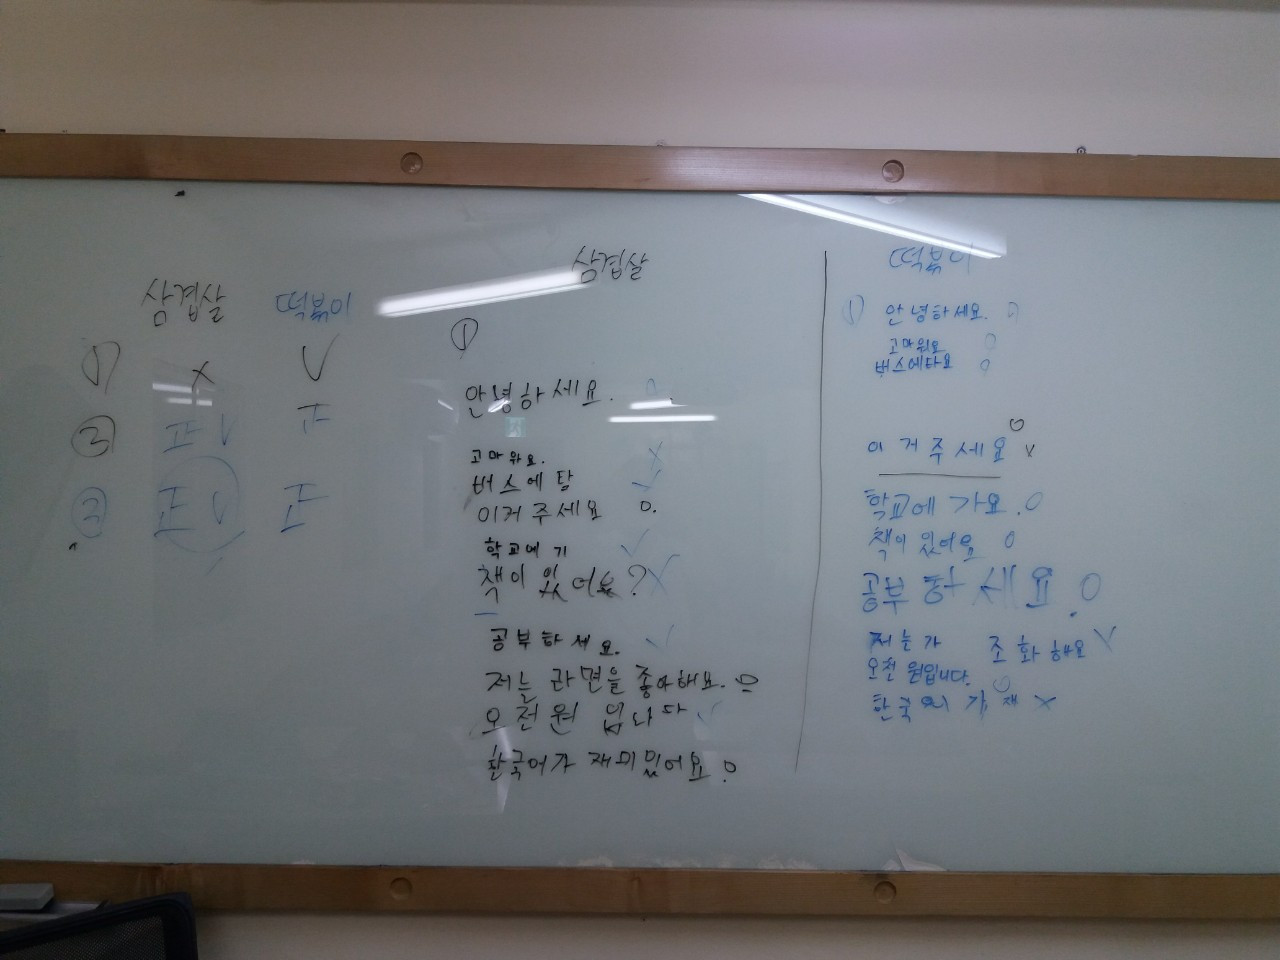 삼겹살 떡볶이
① X V
② 正 V 正
③ 正 V 正
삼겹살
①
안녕하세요.
고마워요. X
버스에 탑 ✓
이거 주세요 O.
학교에 기 ✓
책이 있어요? X
공부하세요. ✓
저는 라면을 좋아해요. O
오천원 입니다 ✓
한국어가 재미있어요 O
떡볶이
① 안녕하세요. O
고마워요 O
버스에타요 O
이거주세요 O X
학교에 가요. O
책이 있어요 O
공부하세요. O
저는가 조화해요 V
오천원입니다. O
한국 가 재 X